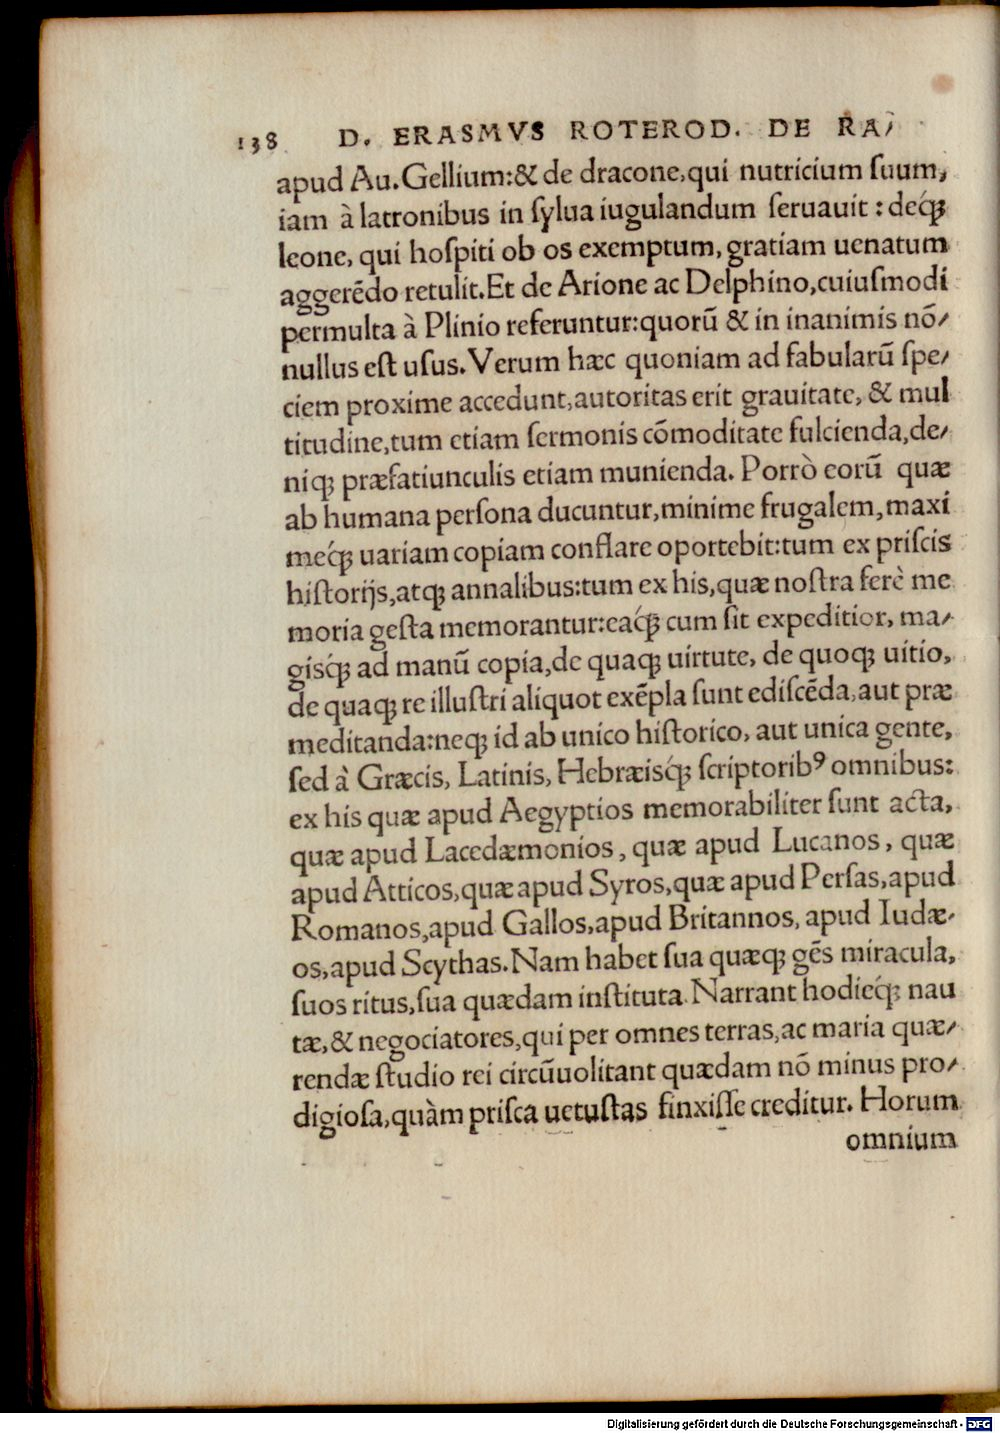 138 D. ERASMVS ROTEROD. DE RA⸗
apud Au. Gellium: & de dracone, qui nutricium ſuum,
iam à latronibus in ſylua iugulandum ſeruauit: deq́ꝫ
leone, qui hoſpiti ob os exemptum, gratiam uenatum
aggerēdo retulit. Et de Arione ac Delphino, cuiuſmodi
permulta à Plinio referuntur: quorū & in inanimis nō⸗
nullus eſt uſus. Verum hæc quoniam ad fabularū ſpe⸗
ciem proxime accedunt, autoritas erit grauitate, & mul
titudine, tum etiam ſermonis cōmoditate fulcienda, de⸗
niqꝫ præfatiunculis etiam munienda. Porrò eorū quæ
ab humana perſona ducuntur, minime frugalem, maxi
meq́ꝫ uariam copiam conflare oportebit: tum ex priſcis
hiſtorijs, atqꝫ annalibus: tum ex his, quæ noſtra ferè me
moria geſta memorantur: eaq́ꝫ cum ſit expeditior, ma⸗
gisq́ꝫ ad manū copia, de quaqꝫ uirtute, de quoqꝫ uitio,
de quaqꝫ re illuſtri aliquot exēpla ſunt ediſcēda, aut præ
meditanda: neqꝫ id ab unico hiſtorico, aut unica gente,
ſed à Græcis, Latinis, Hebræisq́ꝫ ſcriptoribꝰ omnibus:
ex his quæ apud Aegyptios memorabiliter ſunt acta,
quæ apud Lacedæmonios, quæ apud Lucanos, quæ
apud Atticos, quæ apud Syros, quæ apud Perſas, apud
Romanos, apud Gallos, apud Britannos, apud Iudæ⸗
os, apud Scythas. Nam habet ſua quæqꝫ gēs miracula,
ſuos ritus, ſua quædam inſtituta. Narrant hodieq́ꝫ nau
tæ, & negociatores, qui per omnes terras, ac maria quæ⸗
rendæ ſtudio rei circūuolitant quædam nō minus pro⸗
digioſa, quàm priſca uetuſtas finxiſſe creditur. Horum
omnium
Digitalisierung gefördert durch die Deutsche Forschungsgemeinschaft - DFG